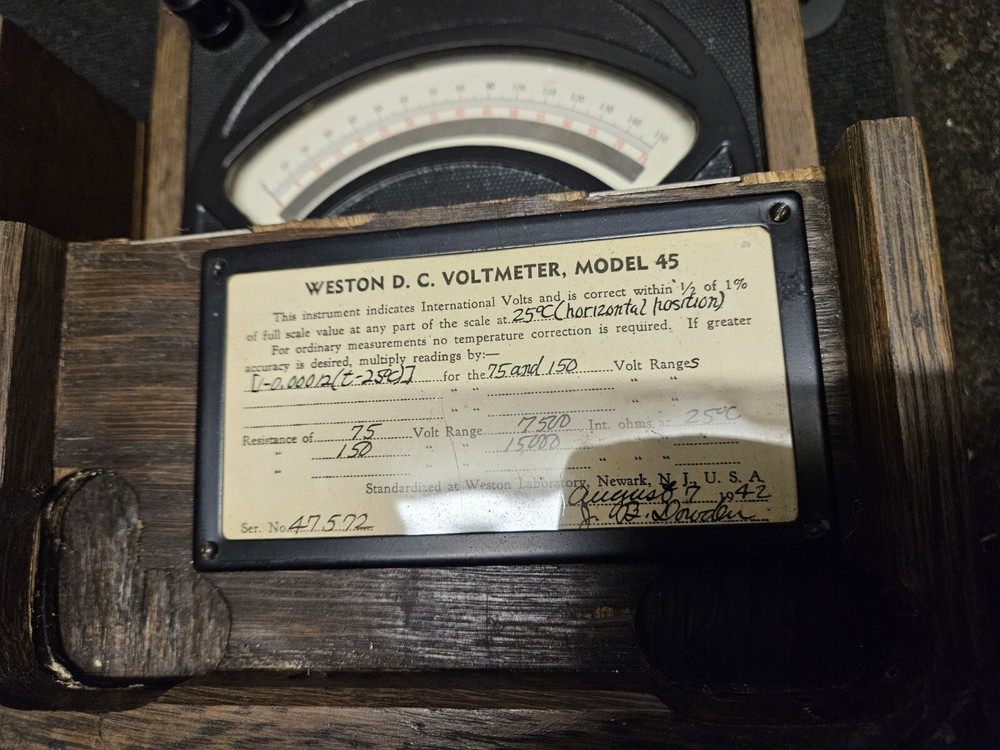 WESTON D. C. VOLTMETER, MODEL 45
This instrument indicates International Volts and is correct within ½ of 1%
of full scale value at any part of the scale at 25°C (horizontal position)
For ordinary measurements no temperature correction is required. If greater
accuracy is desired, multiply readings by:—
[1-0.00012(t-25°C)] for the 75 and 150 Volt Ranges
" " " "
" " " "
Resistance of 75 Volt Range 7500 Int. ohms at 25°C
" 150 " " 15000 " " "
" " " " " "
Standardized at Weston Laboratory, Newark, N. J., U. S. A.
August 7 1942
Ser. No. 47572 J. B. Dowden